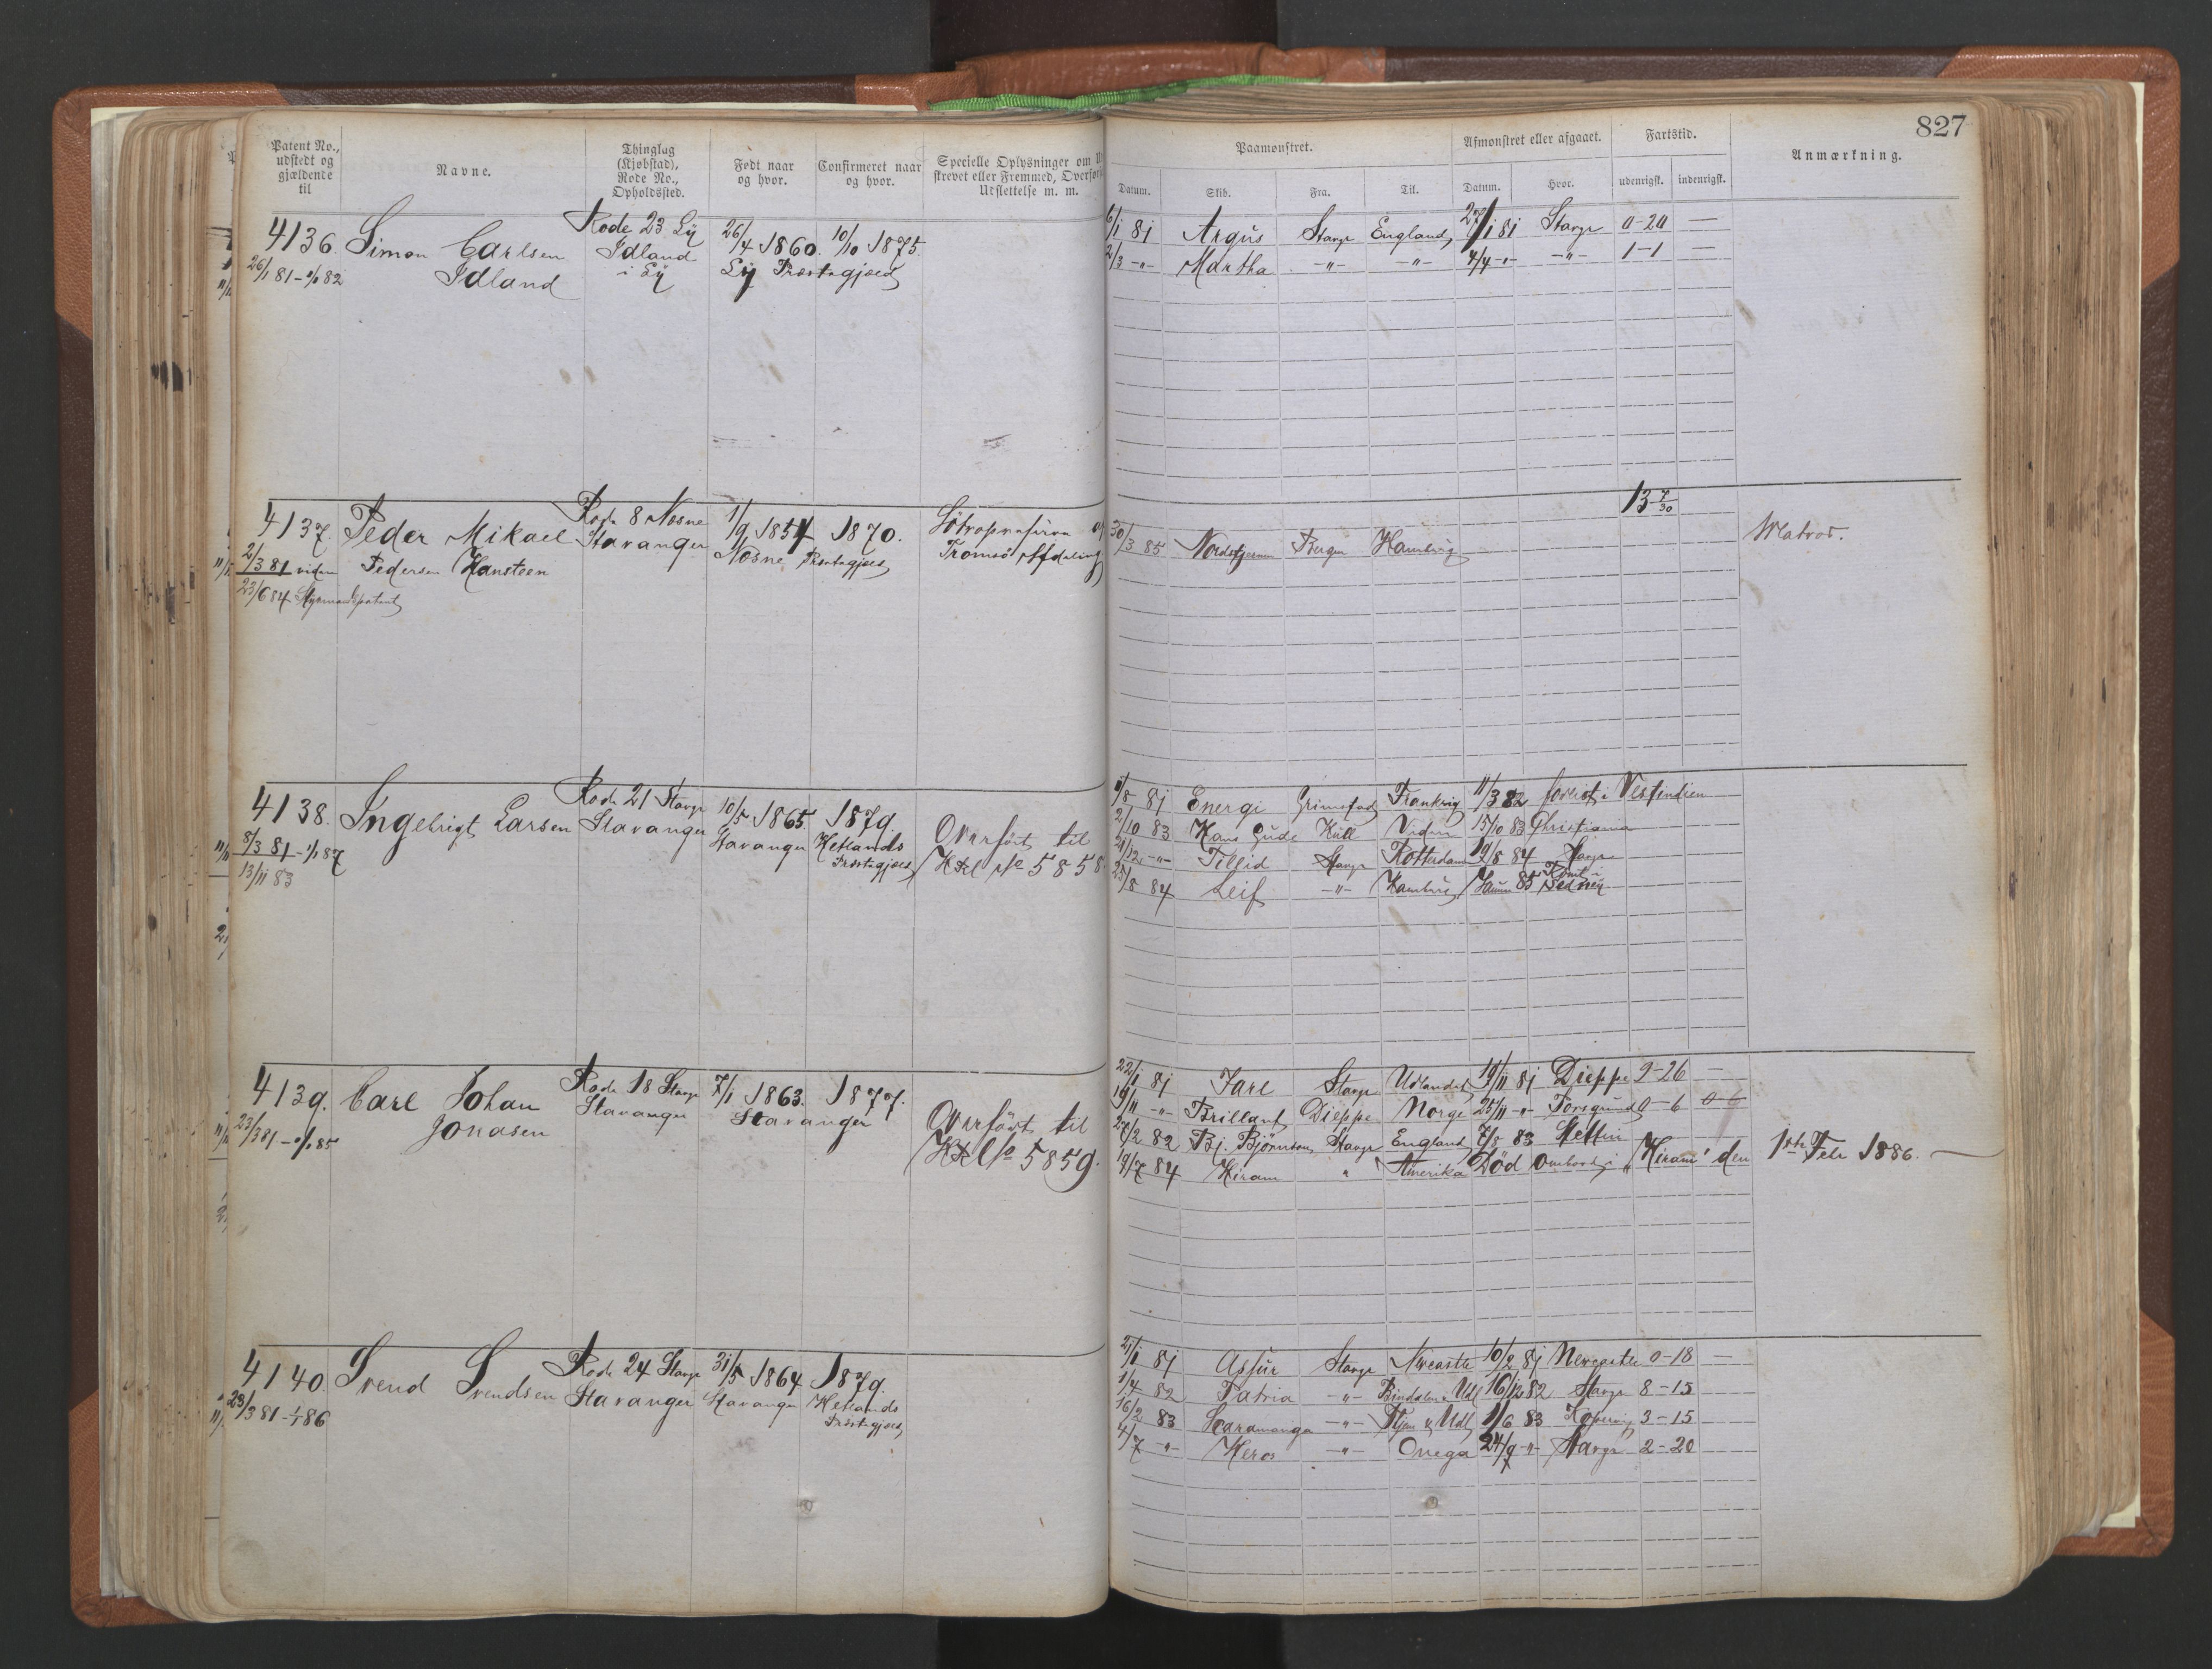 827
Patent No., udstedt og gjældende til
Navne.
Thinglag (Kjøbstad), Rode No., Opholdssted.
Født naar og hvor.
Confirmeret naar og hvor.
Specielle Oplysninger om
skrevet eller Fremmed, Overførs
Udslettelse m. m.
Paamønstret.
Afmønstret eller afgaaet.
Fartstid.
Anmærkning.
Datum. Skib. Fra. Til. Datum. Hvor. udenrigsk. indenrigsk.
4136. Simon Carlsen Rode 23 Ly 26/4 1860. 10/10 1875
26/1 81 – 1/1 82 Idland Idland i Ly Ly Præstegjæld
6/1 81 Argus Stavgr England 27/1 81 Stavgr 0-20 —
2/3 -"- Martha -"- -"- 4/4 -"- -"- 1-1 —
13 7/30
4137. Peder Mikael Rode 8 Nesne 1/9 1854 1870.
2/3 81 Pedersen Hansteen Stavanger Nesne Præstegjæld
Tromsø Afdeling
23/6 84 Styrmandspatent
30/3 85 Nordstjernen Bergen Hamburg Matros.
4138. Ingebrigt Larsen Rode 21 Stavgr 10/5 1865 1879.
8/3 81 – 1/1 87 Stavanger Stavanger Hetlands Præstegjæld
13/11 83
Overført til
Htl No 5858
81 Energi Grimstad Frankrig 11/3 82 forlist i Vestindien
2/10 83 Hans Gude Hull Viden 15/10 83 Christiania
21/12 -"- Tillid Stavgr Rotterdam 19/8 84 Stavgr
25/8 84 Leif -"- Hamburg 85 Rømt i Sidney
4139. Carl Johan Rode 18 Stavgr 7/1 1863. 1877.
23/3 81 – 1/1 85 Jonasen Stavanger Stavanger
Overført til
No 5859.
22/1 81 Jarl Stavgr Udlandet 19/11 81 Dieppe 9-26 —
19/11 -"- Brillant Dieppe Norge 25/11 -"- Porsgrund 0-6 0-6
27/2 82 Bj. Bjørnson Stavgr England 7/8 83 Stettin
19/7 84 Hiram " Amerika Død ombord i "Hiram" den 1ste Feb 1886. —
4140. Svend Svendsen Rode 24 Stavgr 31/5 1864 1879.
23/3 81 – 1/1 86 Stavanger Stavanger Hetlands Præstegjæld
21/1 81 Assur Stavgr Newcastle 10/2 81 Newcastle 0-18 —
1/4 82 Patria -"- Udl 16/12 82 Stavgr 8-15
16/2 83 Scaramanga -"- Udl 1/6 83 Kopervig 3-15
4/7 -"- Heros -"- Onega 24/9 -"- Stavgr 2-20